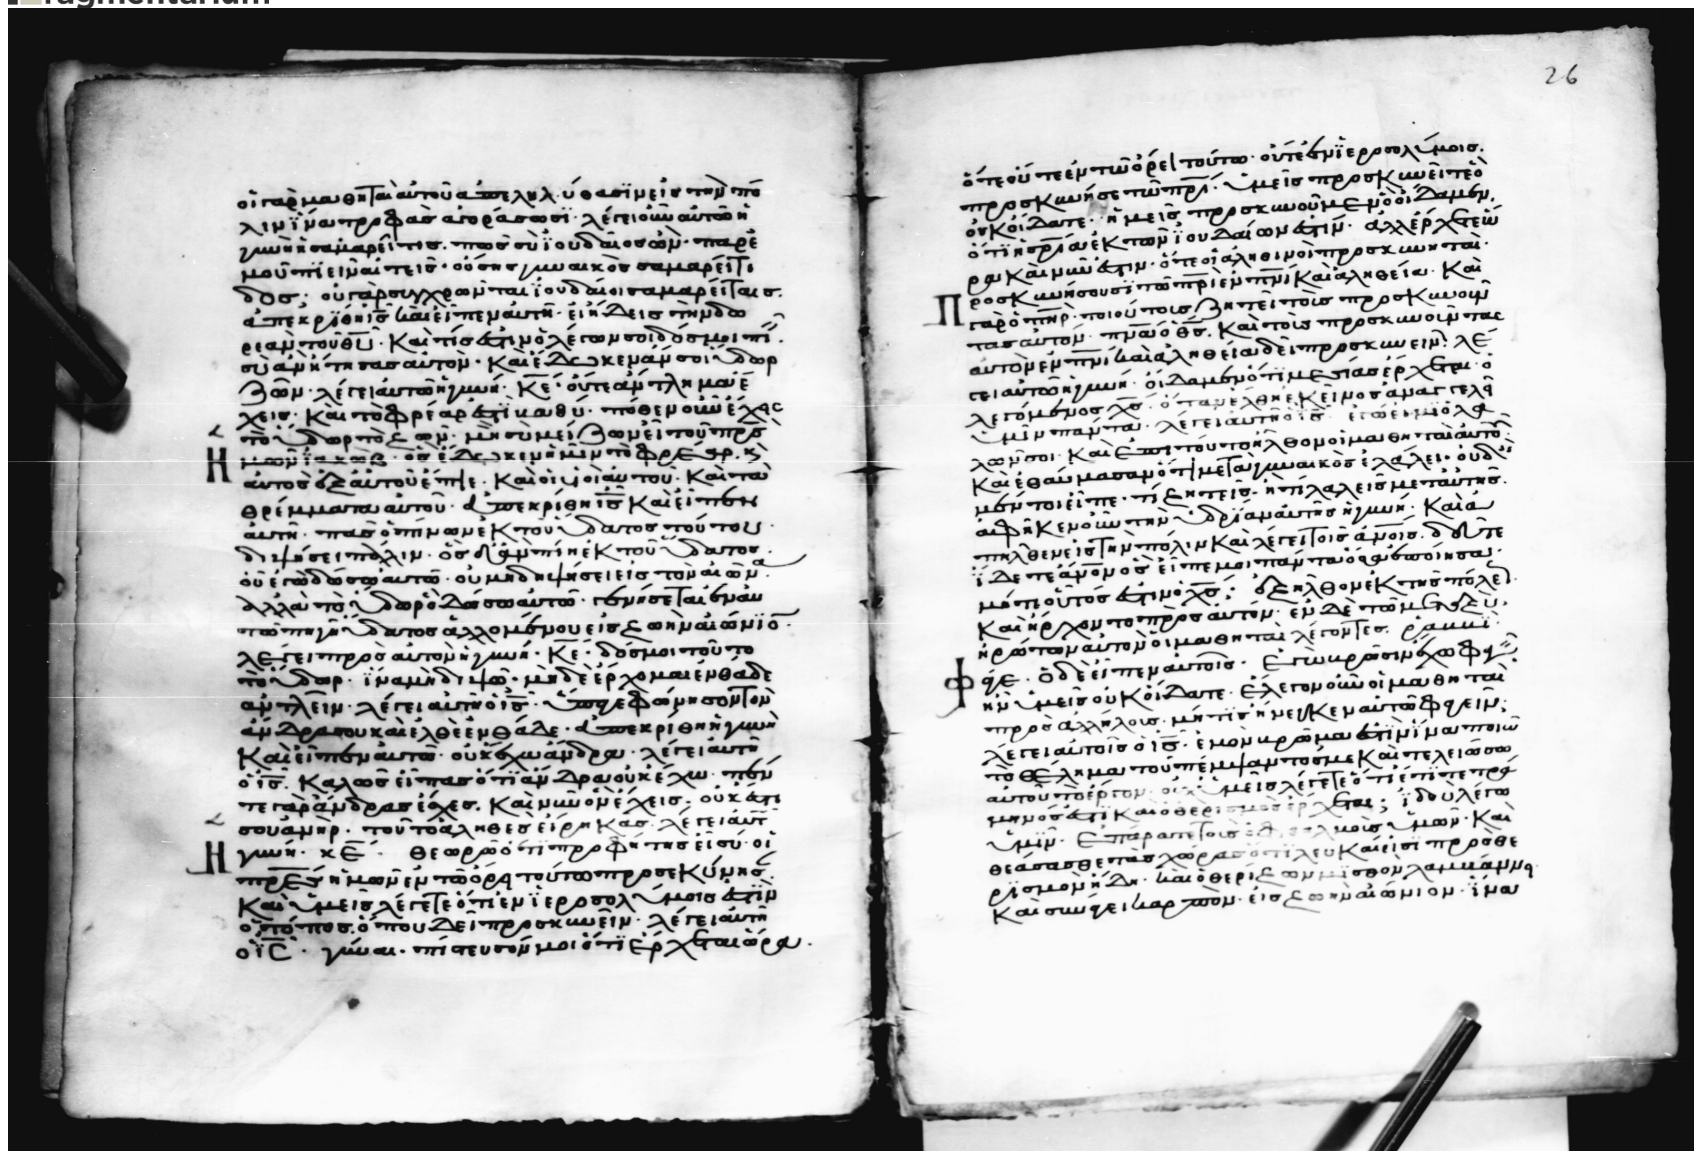 οἱ γὰρ μαθηταὶ αὐτοῦ ἀπεληλύθασϊν εἰς τὴν πό
λιν ἵνα τροφὰς ἀγοράσωσϊ· λέγει οὖν αὐτῶ ἡ
γυνὴ ἡ σαμαρεῖτις· πῶς σὺ ϊουδαῖος ὢν· παρ' ἐ
μοῦ πιεῖν αἰτεῖς· οὔσης γυναικὸς σαμαρείτι
δος· οὐ γὰρ συγχρῶνται ϊουδαῖοι σαμαρείταις·
ἀπεκρίθη ὁ ι̅ς̅ καὶ εἶπεν αὐτῆ· εἰ ἤδεις τὴν δω
ρεὰν τοῦ θ̅υ̅· καὶ τίς ἐστιν ὁ λέγων σοι δός μοι πι
σὺ ἂν ἤτησας αὐτὸν· καὶ ἔδωκεν ἄν σοι ὕδωρ
ζῶν· λέγει αὐτῶ ἡ γυνή· κ̅ε̅· οὔτε ἄντλημα ἔ
χεις· καὶ τὸ φρέαρ ἐστὶ βαθύ· πόθεν οὖν ἔχεις
τὸ ὕδωρ τὸ ζῶν· μὴ σὺ μείζων εἶ τοῦ π̅ρ̅ς̅
ἡμῶν ϊακώβ· ὃς ἔδωκεν ἡμῖν τὸ φρέαρ· κ̀
αὐτὸς ἐξ αὐτοῦ ἔπιε· καὶ οἱ υἱοὶ αὐτοῦ· καὶ τὰ
θρέμματα αὐτοῦ· ἀπεκρίθη ι̅ς̅ καὶ εἶπεν
αὐτῆ· πᾶς ὁ πίνων ἐκ τοῦ ὕδατος τούτου·
διψήσει πάλιν· ὃς δ' ἂν πίη ἐκ τοῦ ὕδατος
οὗ ἐγὼ δώσω αὐτῶ· οὐ μὴ διψήσει εἰς τὸν αἰῶνα·
ἀλλὰ τὸ ὕδωρ ὃ δώσω αὐτῶ· γενήσεται ἐν αὐ
τῶ πηγὴ ὕδατος ἁλλομένου εἰς ζωὴν αἰώνιο̅·
λέγει πρὸς αὐτὸν ἡ γυνή· κ̅ε̅· δός μοι τοῦτο
τὸ ὕδωρ· ἵνα μὴ διψῶ· μὴ δὲ ἔρχομαι ἐνθάδε
ἀντλεῖν· λέγει αὐτῆ ὁ ι̅ς̅· ὕπαγε φώνησον τὸν
ἄνδρα σου καὶ ἐλθὲ ἐνθάδε· ἀπεκρίθη ἡ γυνὴ
καὶ εἶπεν αὐτῶ· οὐκ ἔχω ἄνδρα· λέγει αὐτῆ
ὁ ι̅ς̅· καλῶς εἶπας ὅτι ἄνδρα οὐκ ἔχω· πέν
τε γὰρ ἄνδρας ἔσχες· καὶ νῦν ὃν ἔχεις· οὐκ ἔστι
σου ἀνήρ· τοῦτο ἀληθὲς εἴρηκας· λέγει αὐτ
ἡ γυνή· κ̅ε̅· θεωρῶ ὅτι προφήτης εἶ σύ· οἱ
π̅ρ̅ε̅ς̅ ἡμῶν ἐν τῶ ὄρει τούτω προσεκύνησ
καὶ ὑμεῖς λέγετε ὅτι ἐν ϊεροσολύμοις ἐστὶν
ὁ τόπος ὅπου δεῖ προσκυνεῖν· λέγει αὐτῆ
ὁ ι̅ς̅· γύναι· πίστευσόν μοι ὅτι ἔρχεται ὥρα·
26
ὅτε οὔτε ἐν τῶ ὄρει τούτω· οὔτε ἐν ϊεροσολύμοις·
προσκυνήσετε τῶ π̅ρ̅ι̅· ὑμεῖς προσκυνεῖτε ὃ
οὐκ οἴδατε· ἡμεῖς προσκυνοῦμεν ὃ οἴδαμεν·
ὅτι ἡ σ̅ρ̅ι̅α̅ ἐκ τῶν ϊουδαίων ἐστίν· ἀλλ' ἔρχεται ὥ
ρα καὶ νῦν ἐστιν· ὅτε οἱ ἀληθινοὶ προσκυνηταὶ·
προσκυνήσουσϊ τῶ π̅ρ̅ι̅ ἐν π̅ν̅ι̅ καὶ ἀληθεία· καὶ
γὰρ ὁ π̅η̅ρ̅· τοιούτους ζητεῖ τοὺς προσκυνοῦν
τας αὐτόν· π̅ν̅α̅ ὁ θ̅ς̅· καὶ τοὺς προσκυνοῦντας
αὐτὸν ἐν π̅ν̅ι̅ καὶ ἀληθεία δεῖ προσκυνεῖν· λέ
γει αὐτῶ ἡ γυνή· οἴδαμεν ὅτι μεσίας ἔρχεται· ὁ
λεγόμενος χ̅ς̅· ὅταν ἔλθη ἐκεῖνος ἀναγγελεῖ
ὑμῖν πάντα· λέγει αὐτῆ ὁ ι̅ς̅· ἐγώ εἰμι ὁ λα
λῶν σοι· καὶ ἐπὶ τούτω ἦλθον οἱ μαθηταὶ αὐτοῦ
καὶ ἐθαύμασαν ὅτι μετὰ γυναικὸς ἐλάλει· οὐδεὶς
μέντοι εἶπε· τί ζητεῖς· ἢ τί λαλεῖς μετ' αὐτῆς·
ἀφῆκεν οὖν τὴν ὑδρίαν αὐτῆς ἡ γυνή· καὶ ἀ
πῆλθεν εἰς τὴν πόλιν καὶ λέγει τοῖς ἀ̅ν̅ο̅ι̅ς̅· δεῦτε
ἴδετε ἄ̅ν̅ο̅ν̅ ὃς εἶπέ μοι πάντα ὅσα ἐποίησα·
μήτι οὗτός ἐστιν ὁ χ̅ς̅; ἐξῆλθον ἐκ τῆς πόλεως
καὶ ἤρχοντο πρὸς αὐτόν· ἐν δὲ τῶ μεταξὺ·
ἠρώτων αὐτὸν οἱ μαθηταὶ λέγοντες· ῥαββϊ·
φάγε· ὁ δὲ εἶπεν αὐτοῖς· ἐγὼ βρῶσιν ἔχω φαγεῖν
ἣν ὑμεῖς οὐκ οἴδατε· ἔλεγον οὖν οἱ μαθηταὶ
πρὸς ἀλλήλους· μή τις ἤνεγκεν αὐτῶ φαγεῖν;
λέγει αὐτοῖς ὁ ι̅ς̅· ἐμὸν βρῶμά ἐστιν ἵνα ποιῶ
τὸ θέλημα τοῦ πέμψαντός με καὶ τελειώσω
αὐτοῦ τὸ ἔργον· οὐχ ὑμεῖς λέγετε ὅτι ἔτι τετρά
μηνός ἐστι καὶ ὁ θερισμὸς ἔρχεται; ἰδοὺ λέγω
ὑμῖν· ἐπάρατε τοὺς ὀφθαλμοὺς ὑμῶν· καὶ
θεάσασθε τὰς χώρας ὅτι λευκαί εἰσι πρὸς θε
ρϊσμὸν ἤδη· καὶ ὁ θερίζων μισθὸν λαμβάνει·
καὶ συνάγει καρπὸν· εἰς ζωὴν αἰώνιον· ἵνα